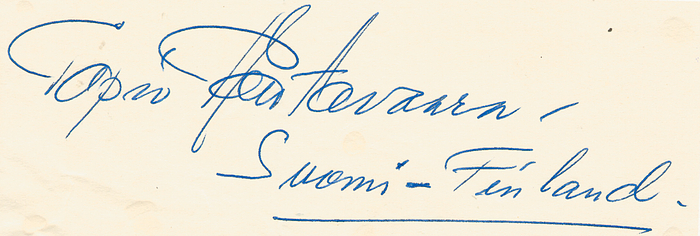 Tapio Rautavaara,
Suomi-Finland.